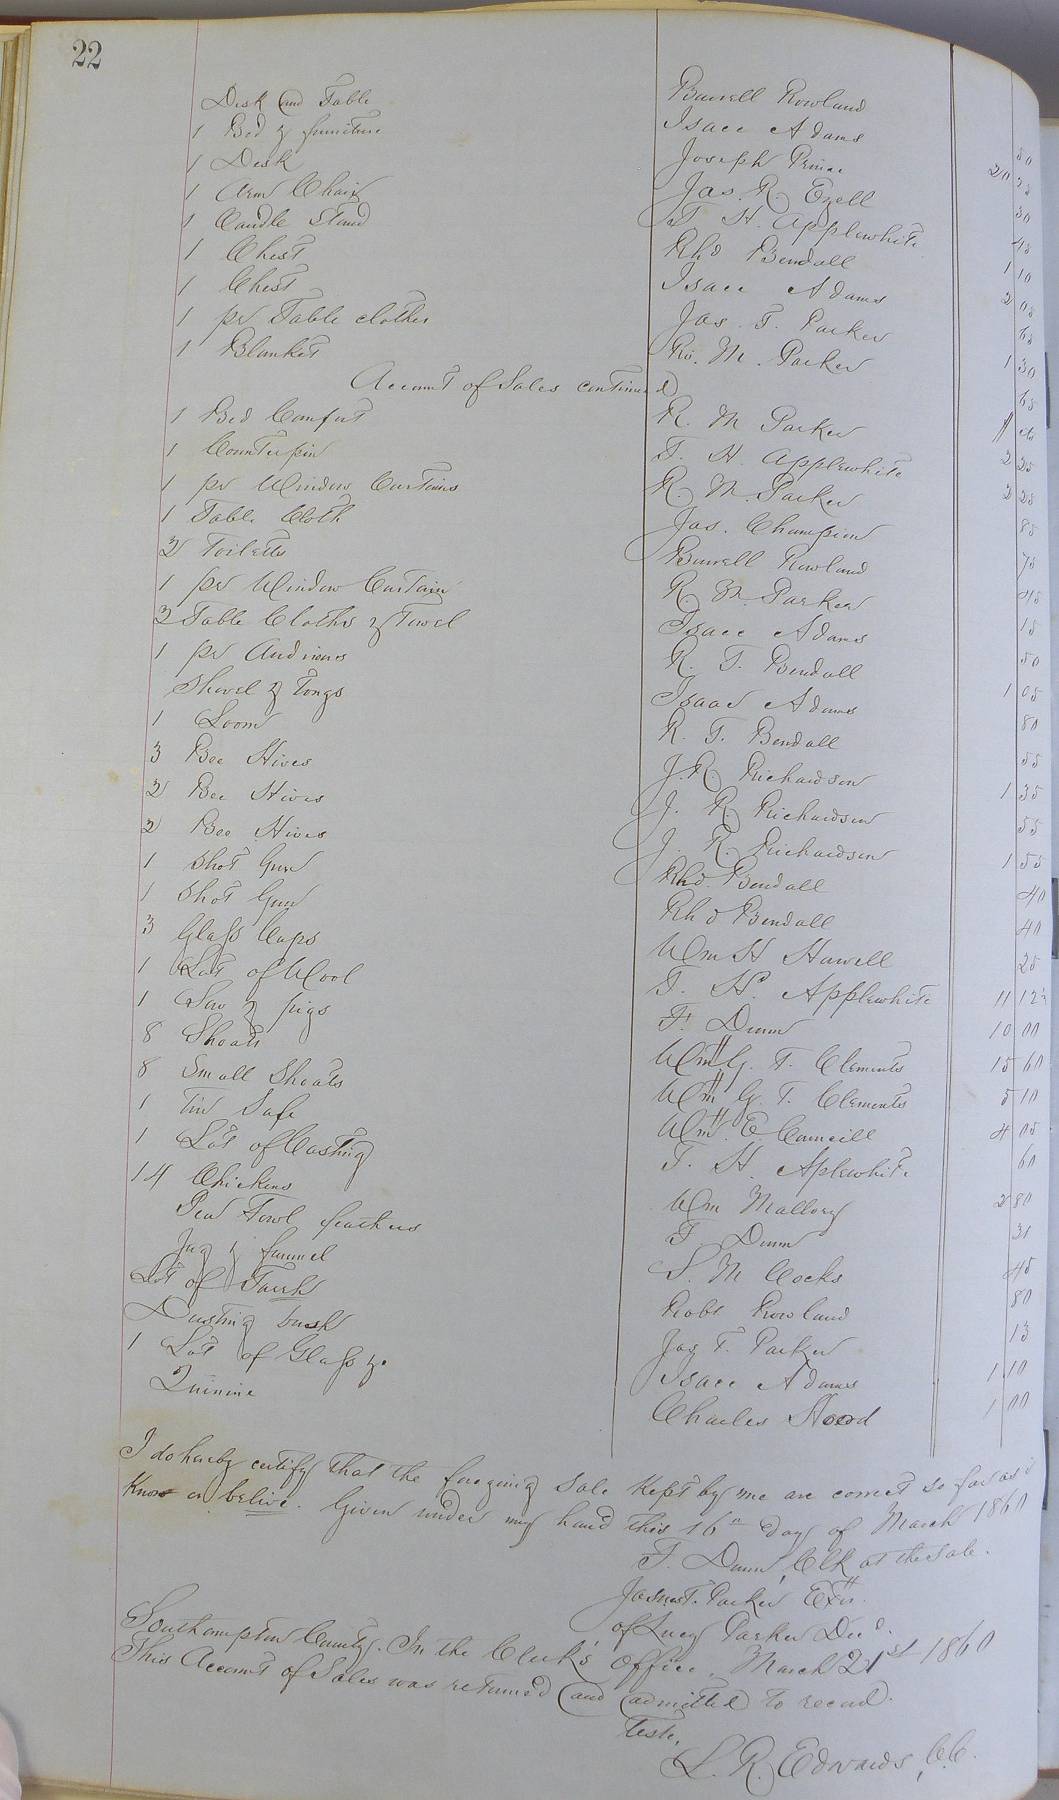 22
Desk and Table Burrell Rowland 50
1 Bed & furniture Isaac Adams 20
1 Desk Joseph Prince 30
1 Arm Chair Jas. R. Ezell
1 Candle Stand T. H. Applewhite 1 10
1 Chest Rhd Bendall
1 Chest Isaac Adams
1 pr Table clothes Jas. T. Parker 1 30
1 Blanket Ro. M. Parker
Account of Sales continued
1 Bed Comfort R. M Parker
1 Counterpin T. H. Applewhite 2 25
1 pr Window Curtains R. M. Parker 2 25
1 Table Cloth Jas. Champion 85
2 Toiletts Burrell Rowland 75
1 pr Window Curtain R M. Parker 45
2 Table Cloths & Towel Isaac Adams 15
1 pr Andirons R. T. Bendall 50
Shovel & Tongs Isaac Adams 1 05
1 Loom R. T. Bendall 80
3 Bee Hives J. R. Richardson 55
2 Bee Hives J. R. Richardson 1 35
2 Bee Hives J. R. Richardson 55
1 Shot Gun Rhd. Bendall 1 55
1 Shot Gun Rhd Bendall 40
3 Glass Cups Wm H Howell 40
1 Lot of Wool T. H. Applewhite 25
1 Sow & pigs F. Dunn 11 12½
8 Shoats Wm G. T. Clements 10 00
8 Small Shoats Wm G. T. Clements 15 60
1 Tin Safe Wm. E. Councill 5 10
1 Lot of Casting T. H. Aplewhite 4 05
14 Chickens Wm Mallory 60
Pea Fowl feathers F. Dunn 2 80
Jug & funnel S. M Cocks 31
Lot of Robt Rowland 45
Dusting bush Jas T. Parker 80
1 Lot of Glass &. Isaac Adams 13
Quinine Charles Hood 1 10
1 00
I do hereby certify that the foregoing Sale Kept by me are correct so far as I
Know or belive. Given under my hand this 16th day of March 1860
F. Dunn, Clk at the Sale.
James T. Parker Extr.
of Lucy Parker Decd.
Southampton County. In the Clerk's Office, March 21st 1860
This Account of Sales was returned and admitted to record.
Teste,
L. R. Edwards, C.C.